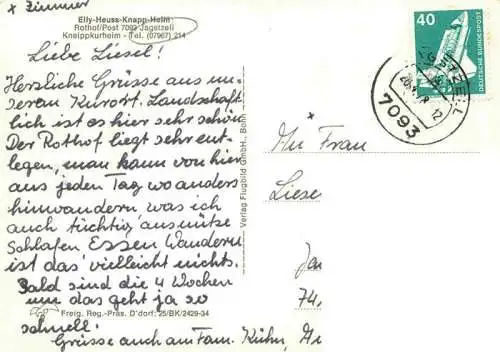 x Zimmer
Elly-Heuss-Knapp-Heim
Rothof/Post 7093 Jagstzell
Kneippkurheim - Tel. (07967) 214
Liebe Liesel!
Herzliche Grüsse aus un-
serem Kurort. Landschaft
lich ist es hier sehr schön
Der Rothof liegt sehr ent-
legen, man kann von hier
aus jeden Tag wo anders
hinwandern, was ich
auch tüchtig ausnütze
Schlafen Essen Wandern
ist das vielleicht nichts.
Bald sind die 4 Wochen
um das geht ja so
Freig. Reg.-Präs. D'dorf: 25/BK/2429-34
schnell!
Grüsse auch am Fam. Kühn,
Verlag Flugbild GmbH., Bonn
40
DEUTSCHE BUNDESPOST
JAGSTZELL
12
7093
x
An Frau
Liese
74,